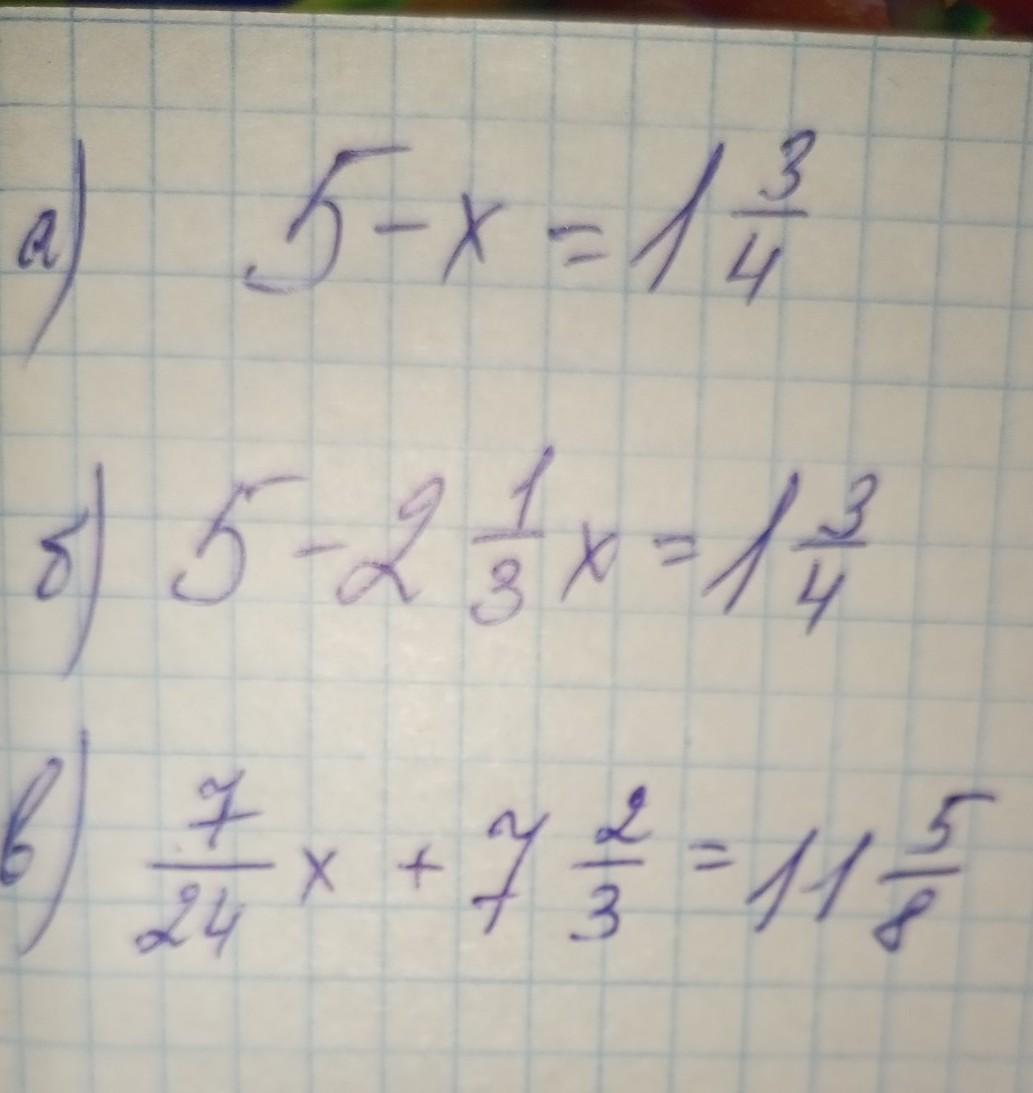 а) 5 - x = 1 3/4
б) 5 - 2 1/3 x = 1 3/4
в) 7/24 x + 7 2/3 = 11 5/8